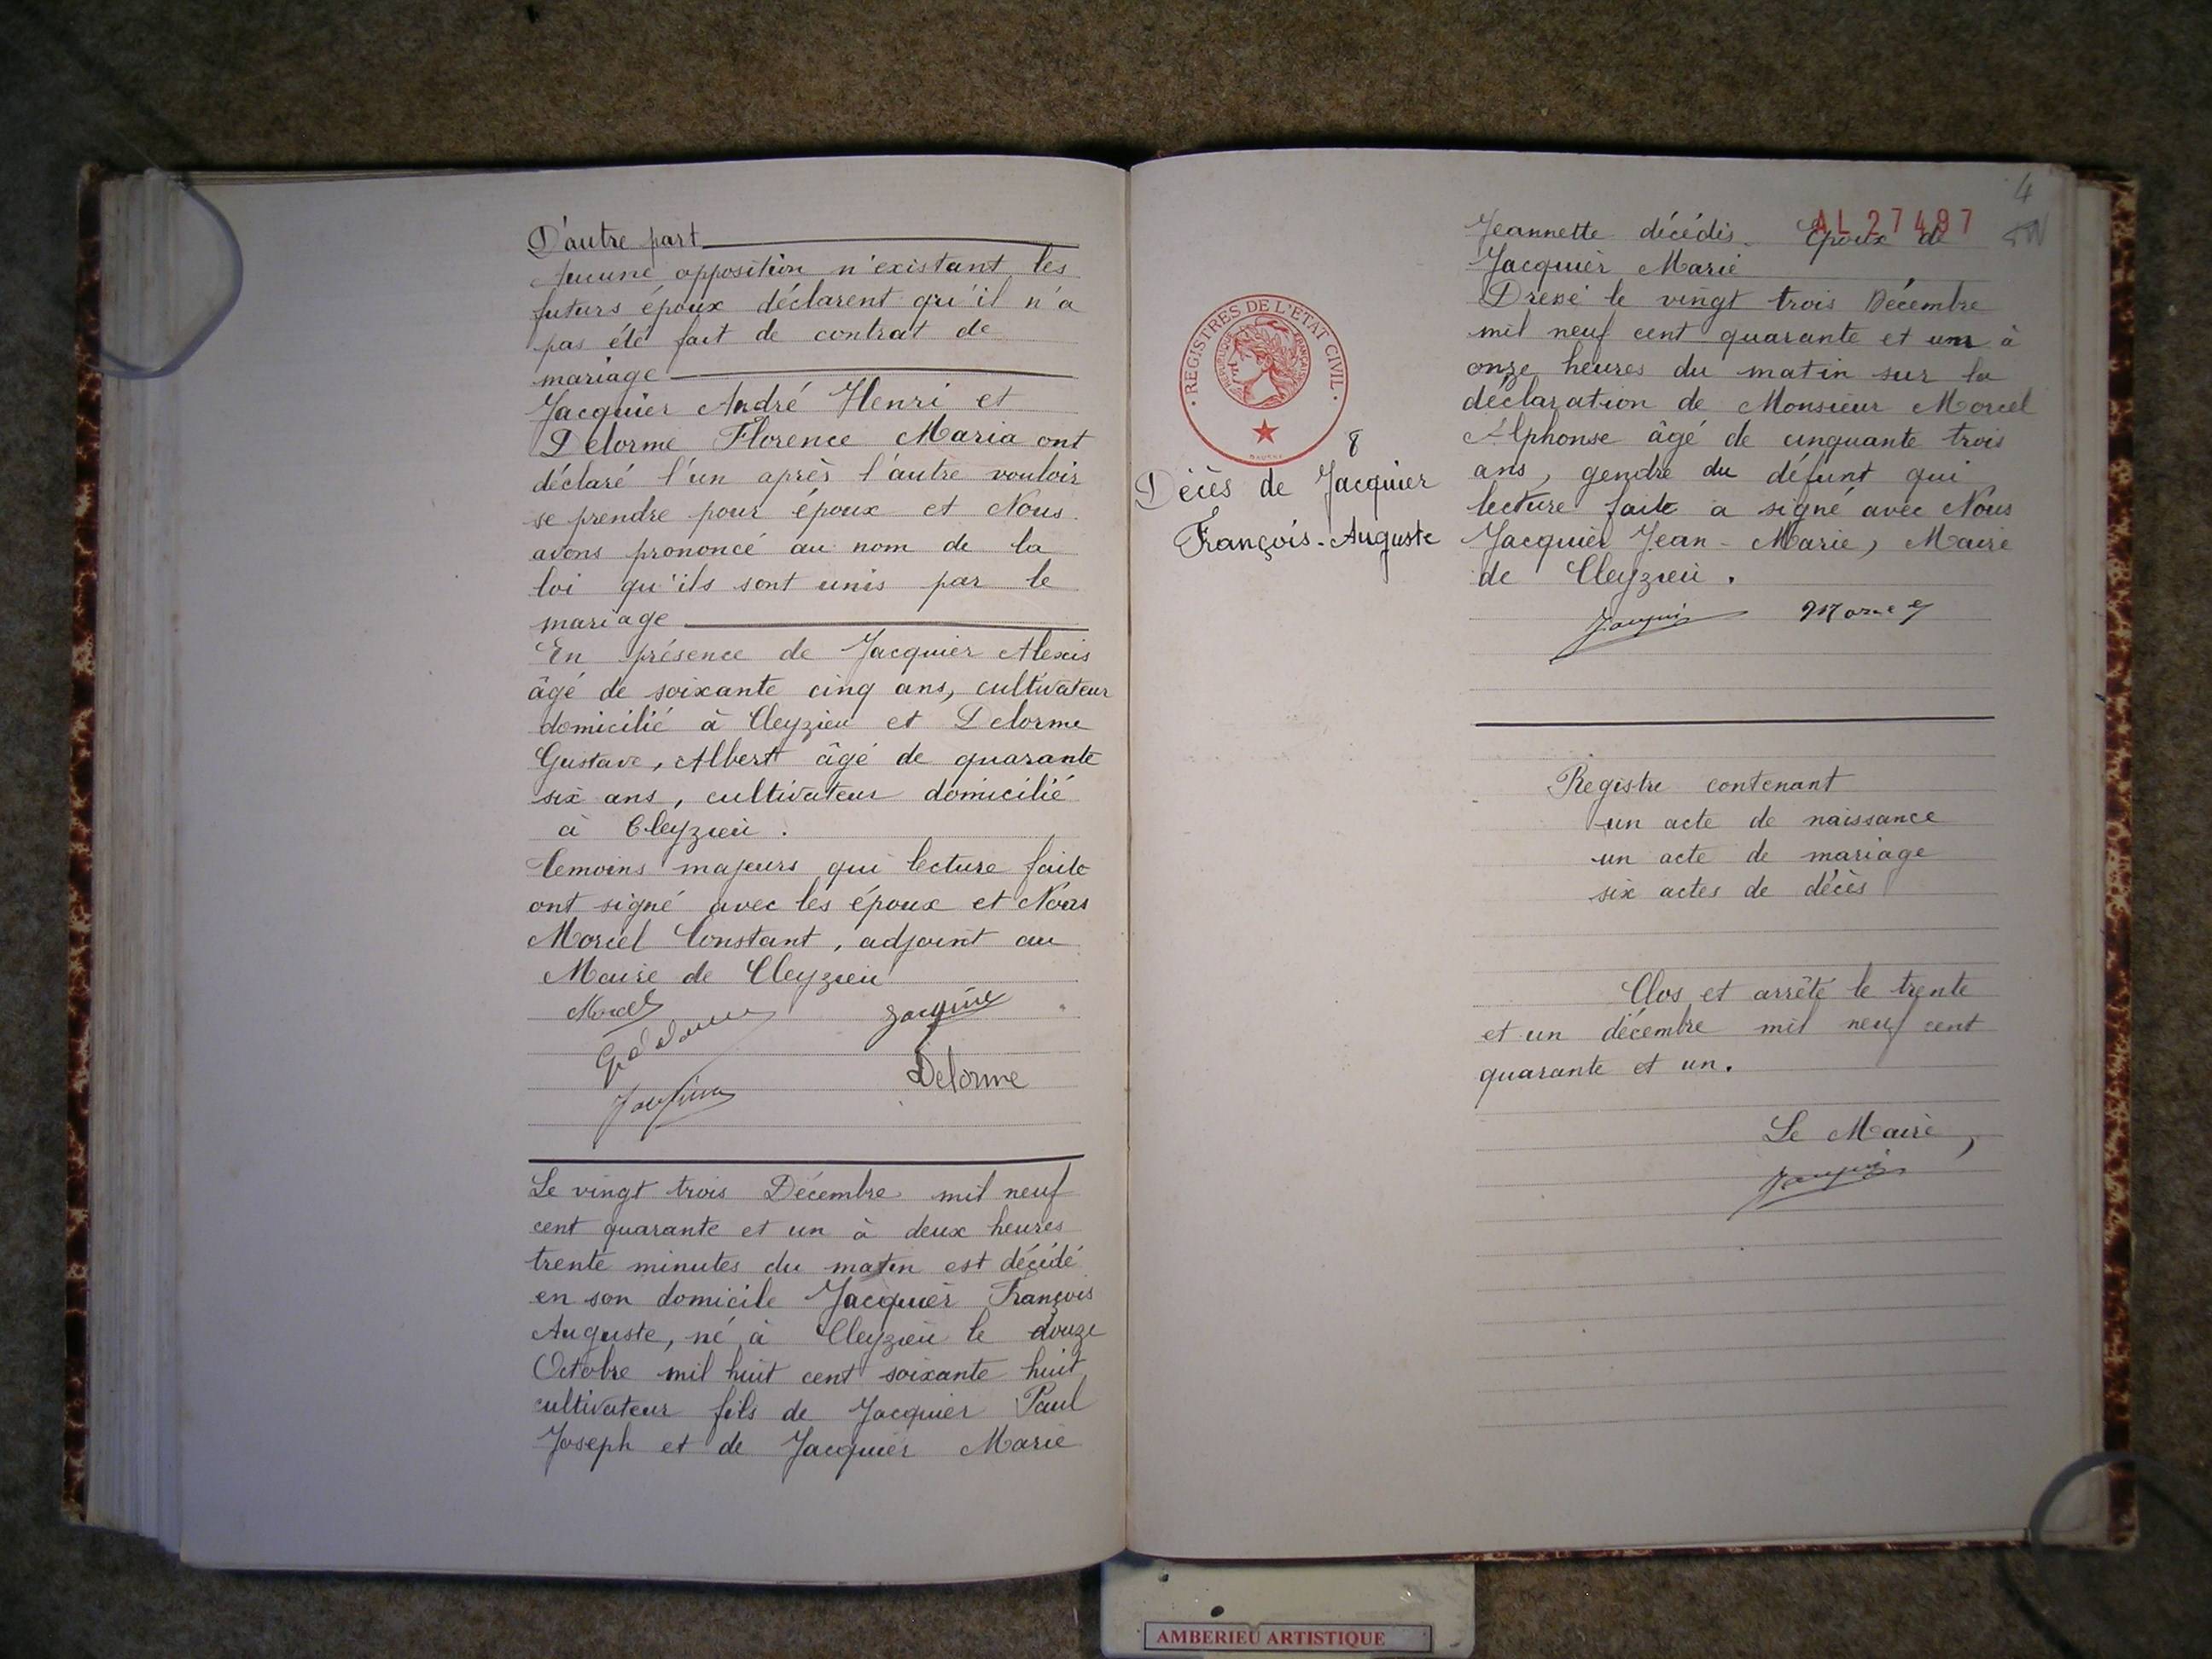 D'autre part
Aucune opposition n'existant les
futurs époux déclarent qu'il n'a
pas été fait de contrat de
mariage
Jacquier André Henri et
Delorme Florence Maria ont
déclaré l'un après l'autre vouloir
se prendre pour époux et Nous
avons prononcé au nom de la
loi qu'ils sont unis par le
mariage
En présence de Jacquier Alexis
âgé de soixante cinq ans, cultivateur
domicilié à Cleyzieu et Delorme
Gustave, Albert âgé de quarante
six ans, cultivateur domicilié
à Cleyzieu.
témoins majeurs qui lecture faite
ont signé avec les époux et Nous
Morcel Constant, adjoint au
Maire de Cleyzieu
Morcel
Jacquier
Delorme
Le vingt trois Décembre mil neuf
cent quarante et un à deux heures
trente minutes du matin est décédé
en son domicile Jacquier François
Auguste, né à Cleyzieu le douze
Octobre mil huit cent soixante huit
cultivateur fils de Jacquier Paul
Joseph et de Jacquier Marie
4
AL 27497
REGISTRES DE L'ETAT CIVIL
REPUBLIQUE FRANÇAISE
8
Décès de Jacquier
François-Auguste
Jeannette décédés. Epoux de
Jacquier Marie
Dressé le vingt trois Décembre
mil neuf cent quarante et un à
onze heures du matin sur la
déclaration de Monsieur Morcel
Alphonse âgé de cinquante trois
ans, gendre du défunt qui
lecture faite a signé avec Nous
Jacquier Jean-Marie, Maire
de Cleyzieu.
Jacquier Morcel
Registre contenant
un acte de naissance
un acte de mariage
six actes de décès
Clos et arrêté le trente
et un décembre mil neuf cent
quarante et un.
Le Maire,
Jacquier
AMBERIEU ARTISTIQUE